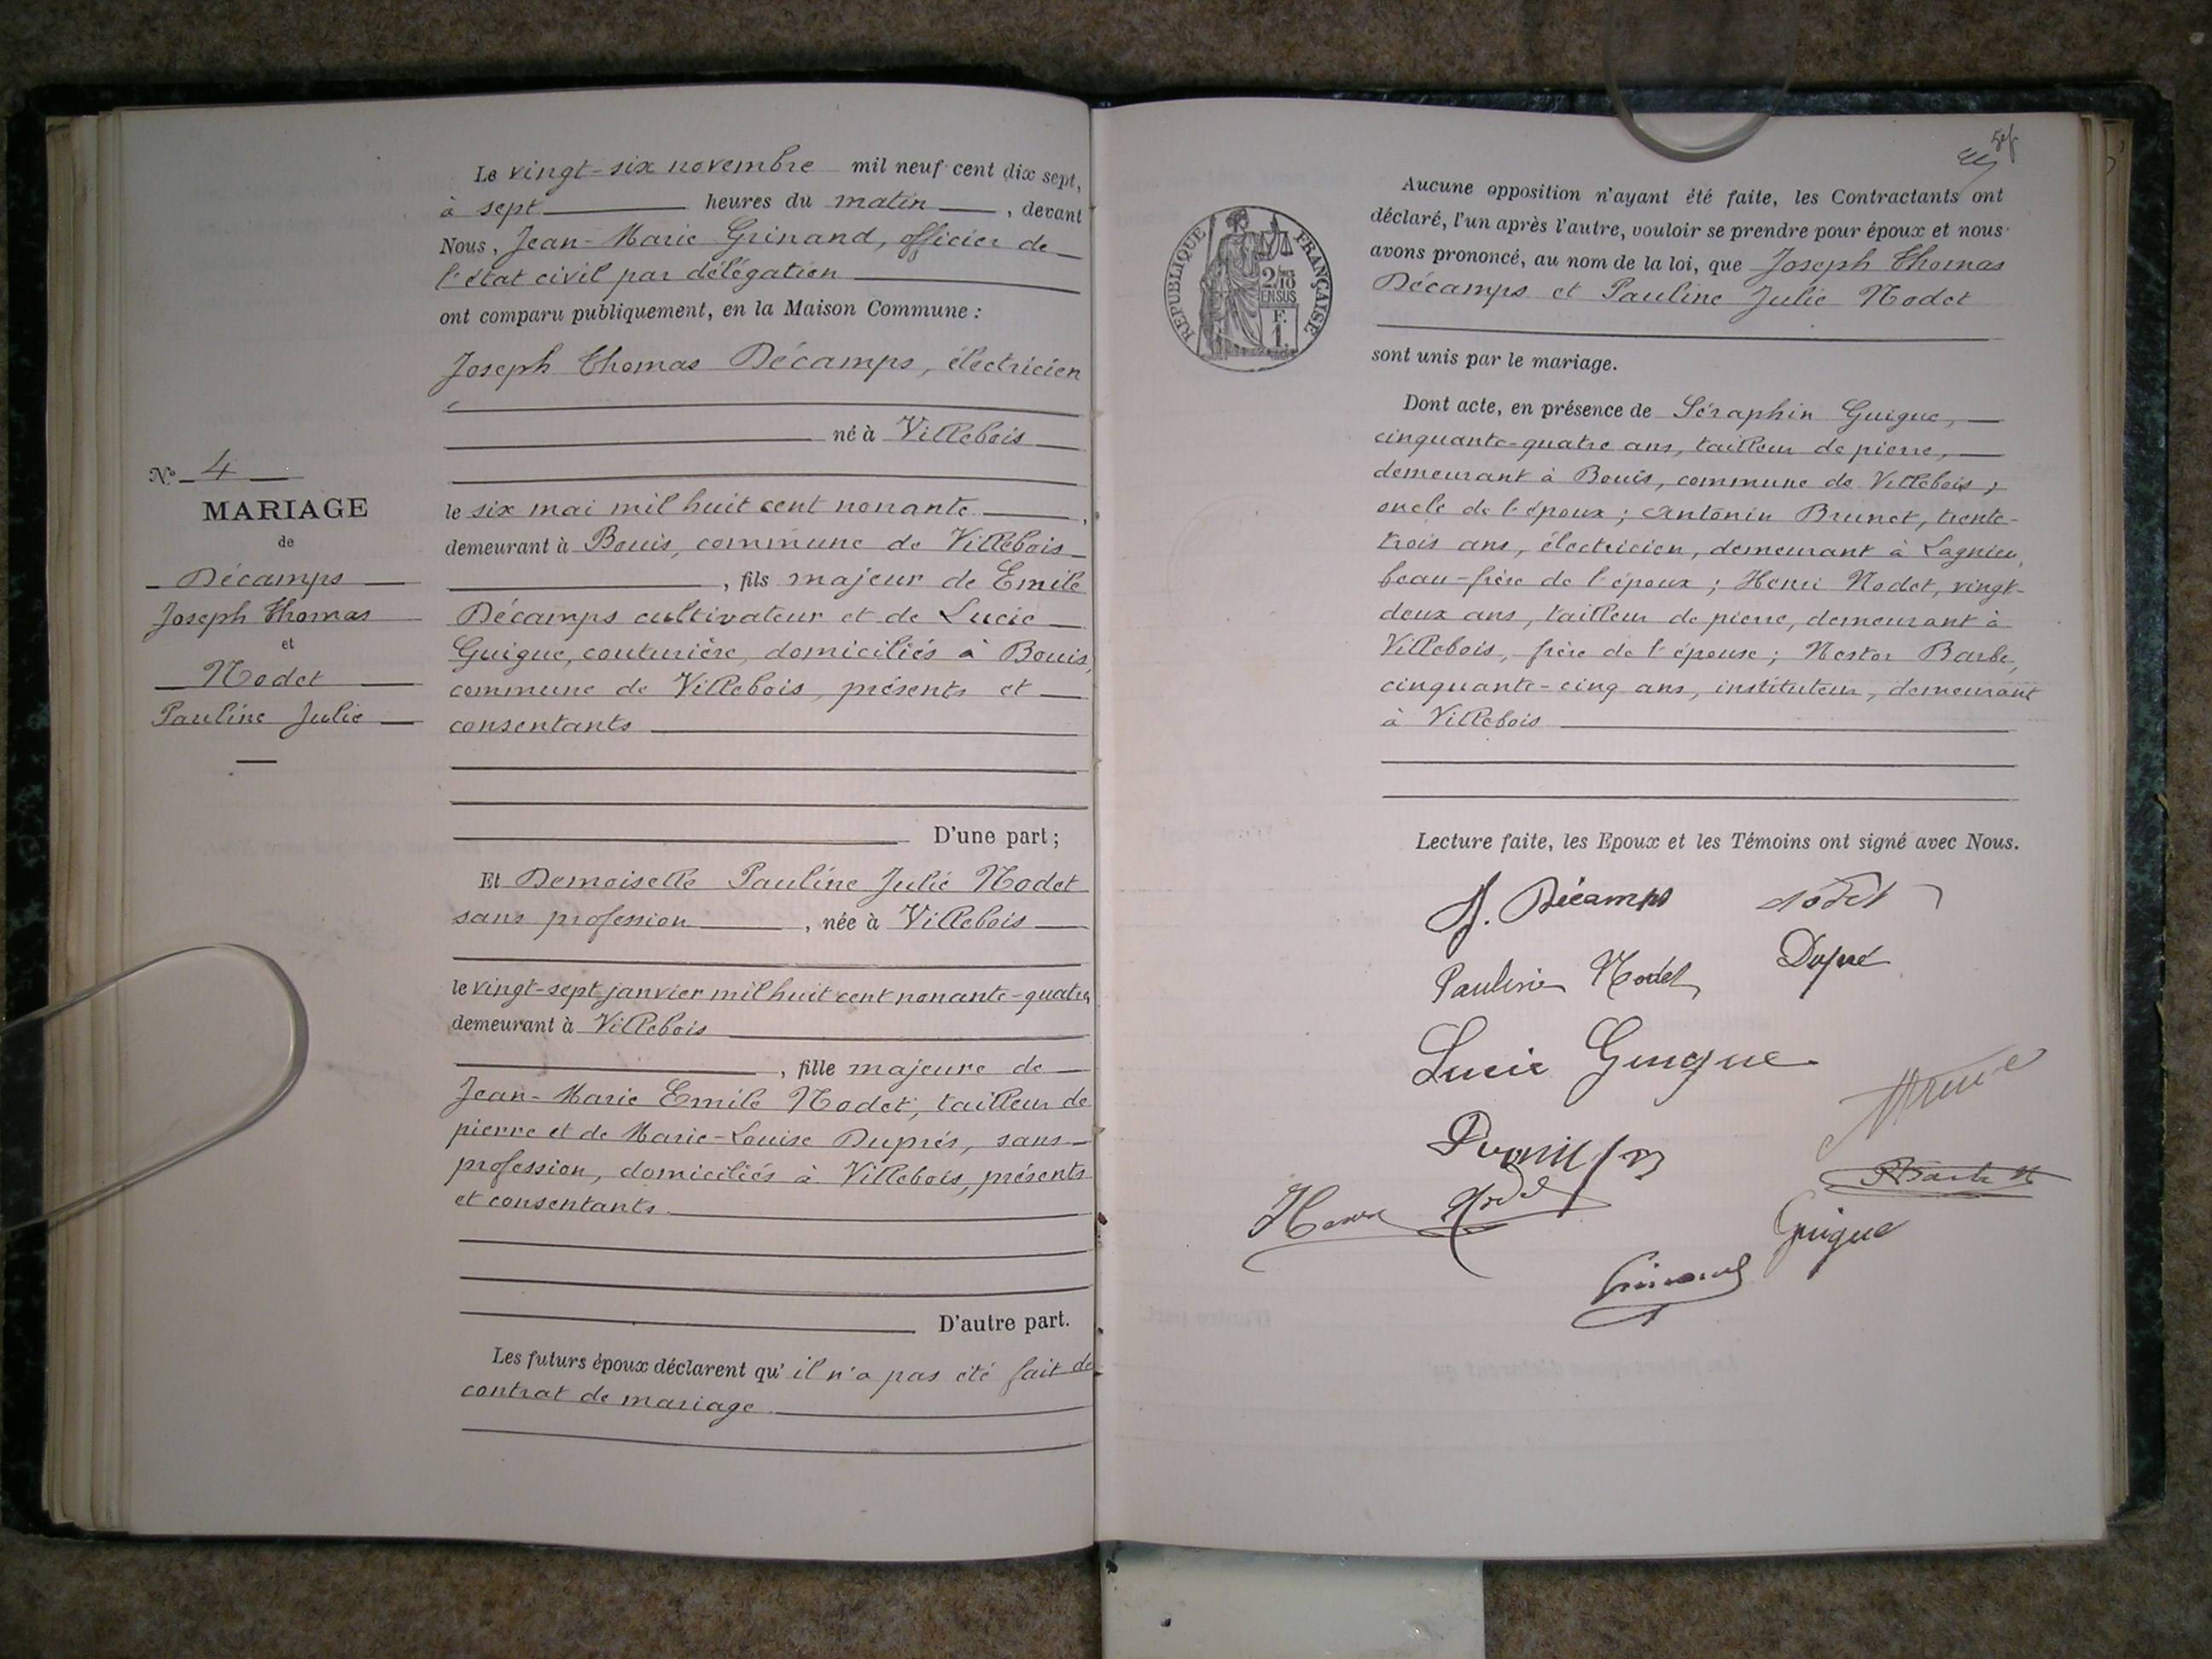 Le vingt-six novembre mil neuf cent dix sept,
à sept heures du matin, devant
Nous, Jean-Marie Grinand, officier de
l'état civil par délégation
ont comparu publiquement, en la Maison Commune :
Joseph Thomas Décamps, électricien
né à Villebois
N° 4
MARIAGE
de
Décamps
Joseph Thomas
et
Nodet
Pauline Julie
le six mai mil huit cent nonante,
demeurant à Bouis, commune de Villebois
, fils majeur de Emile
Décamps cultivateur et de Lucie
Guigue, couturière, domiciliés à Bouis,
commune de Villebois, présents et
consentants
D'une part ;
Et Demoiselle Pauline Julie Nodet
sans profession, née à Villebois
le vingt-sept janvier mil huit cent nonante-quatre,
demeurant à Villebois
, fille majeure de
Jean-Marie Emile Nodet, tailleur de
pierre et de Marie-Louise Duprés, sans
profession, domiciliés à Villebois, présents
et consentants
D'autre part.
Les futurs époux déclarent qu'il n'a pas été fait de
contrat de mariage
RÉPUBLIQUE FRANÇAISE
2/10
EN SUS
F.
1.
Aucune opposition n'ayant été faite, les Contractants ont
déclaré, l'un après l'autre, vouloir se prendre pour époux et nous
avons prononcé, au nom de la loi, que Joseph Thomas
Décamps et Pauline Julie Nodet
sont unis par le mariage.
Dont acte, en présence de Séraphin Guigue,
cinquante-quatre ans, tailleur de pierre,
demeurant à Bouis, commune de Villebois ;
oncle de l'époux ; Antonin Brunet, trente-
trois ans, électricien, demeurant à Lagnieu,
beau-frère de l'époux ; Henri Nodet, vingt-
deux ans, tailleur de pierre, demeurant à
Villebois, frère de l'épouse ; Nestor Barbe,
cinquante-cinq ans, instituteur, demeurant
à Villebois
Lecture faite, les Epoux et les Témoins ont signé avec Nous.
J. Décamps Nodet
Pauline Nodet Dupré
Lucie Guigue
Guigue
Grinand